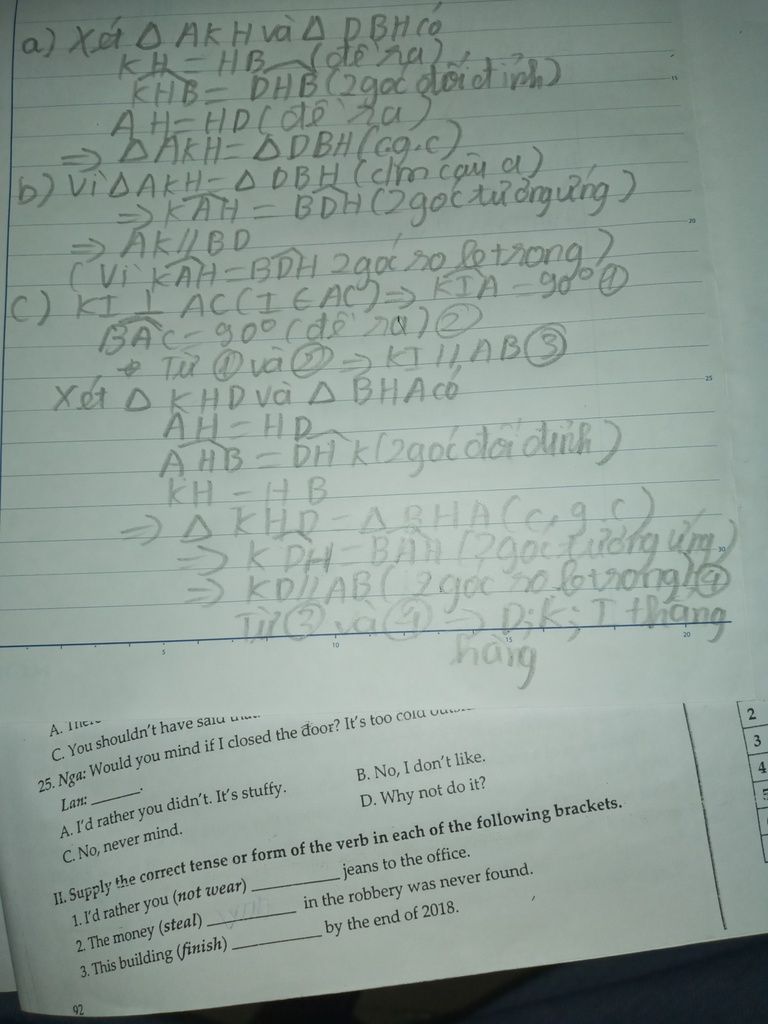 a) Xét △ AKH và △ DBH có
KH = HB (đề ra)
KHB = DHB (2 góc đối đỉnh)
AH = HD (đề ra)
⇒ △ AKH = △ DBH (c.g.c)
b) Vì △ AKH = △ DBH (c/m câu a)
⇒ KAH = BDH (2 góc tương ứng)
⇒ AK // BD
(Vì KAH = BDH 2 góc so le trong)
c) KI ⊥ AC (I ∈ AC) ⇒ KIA = 90° ①
BAC = 90° (đề ra) ②
Từ ① và ② ⇒ KI // AB ③
Xét △ KHD và △ BHA có
AH = HD
AHB = DHK (2 góc đối đỉnh)
KH = HB
⇒ △ KHD = △ BHA (c.g.c)
⇒ KDH = BAH (2 góc tương ứng)
⇒ KD // AB (2 góc so le trong) ④
Từ ③ và ④ ⇒ D; K; I thẳng
hàng
15
20
25
30
5
10
15
20
A.
C. You shouldn't have said
25. Nga: Would you mind if I closed the door? It's too cold
Lan: ______.
A. I'd rather you didn't. It's stuffy.
B. No, I don't like.
C. No, never mind.
D. Why not do it?
II. Supply the correct tense or form of the verb in each of the following brackets.
1. I'd rather you (not wear) __________ jeans to the office.
2. The money (steal) __________ in the robbery was never found.
3. This building (finish) __________ by the end of 2018.
92
2
3
4